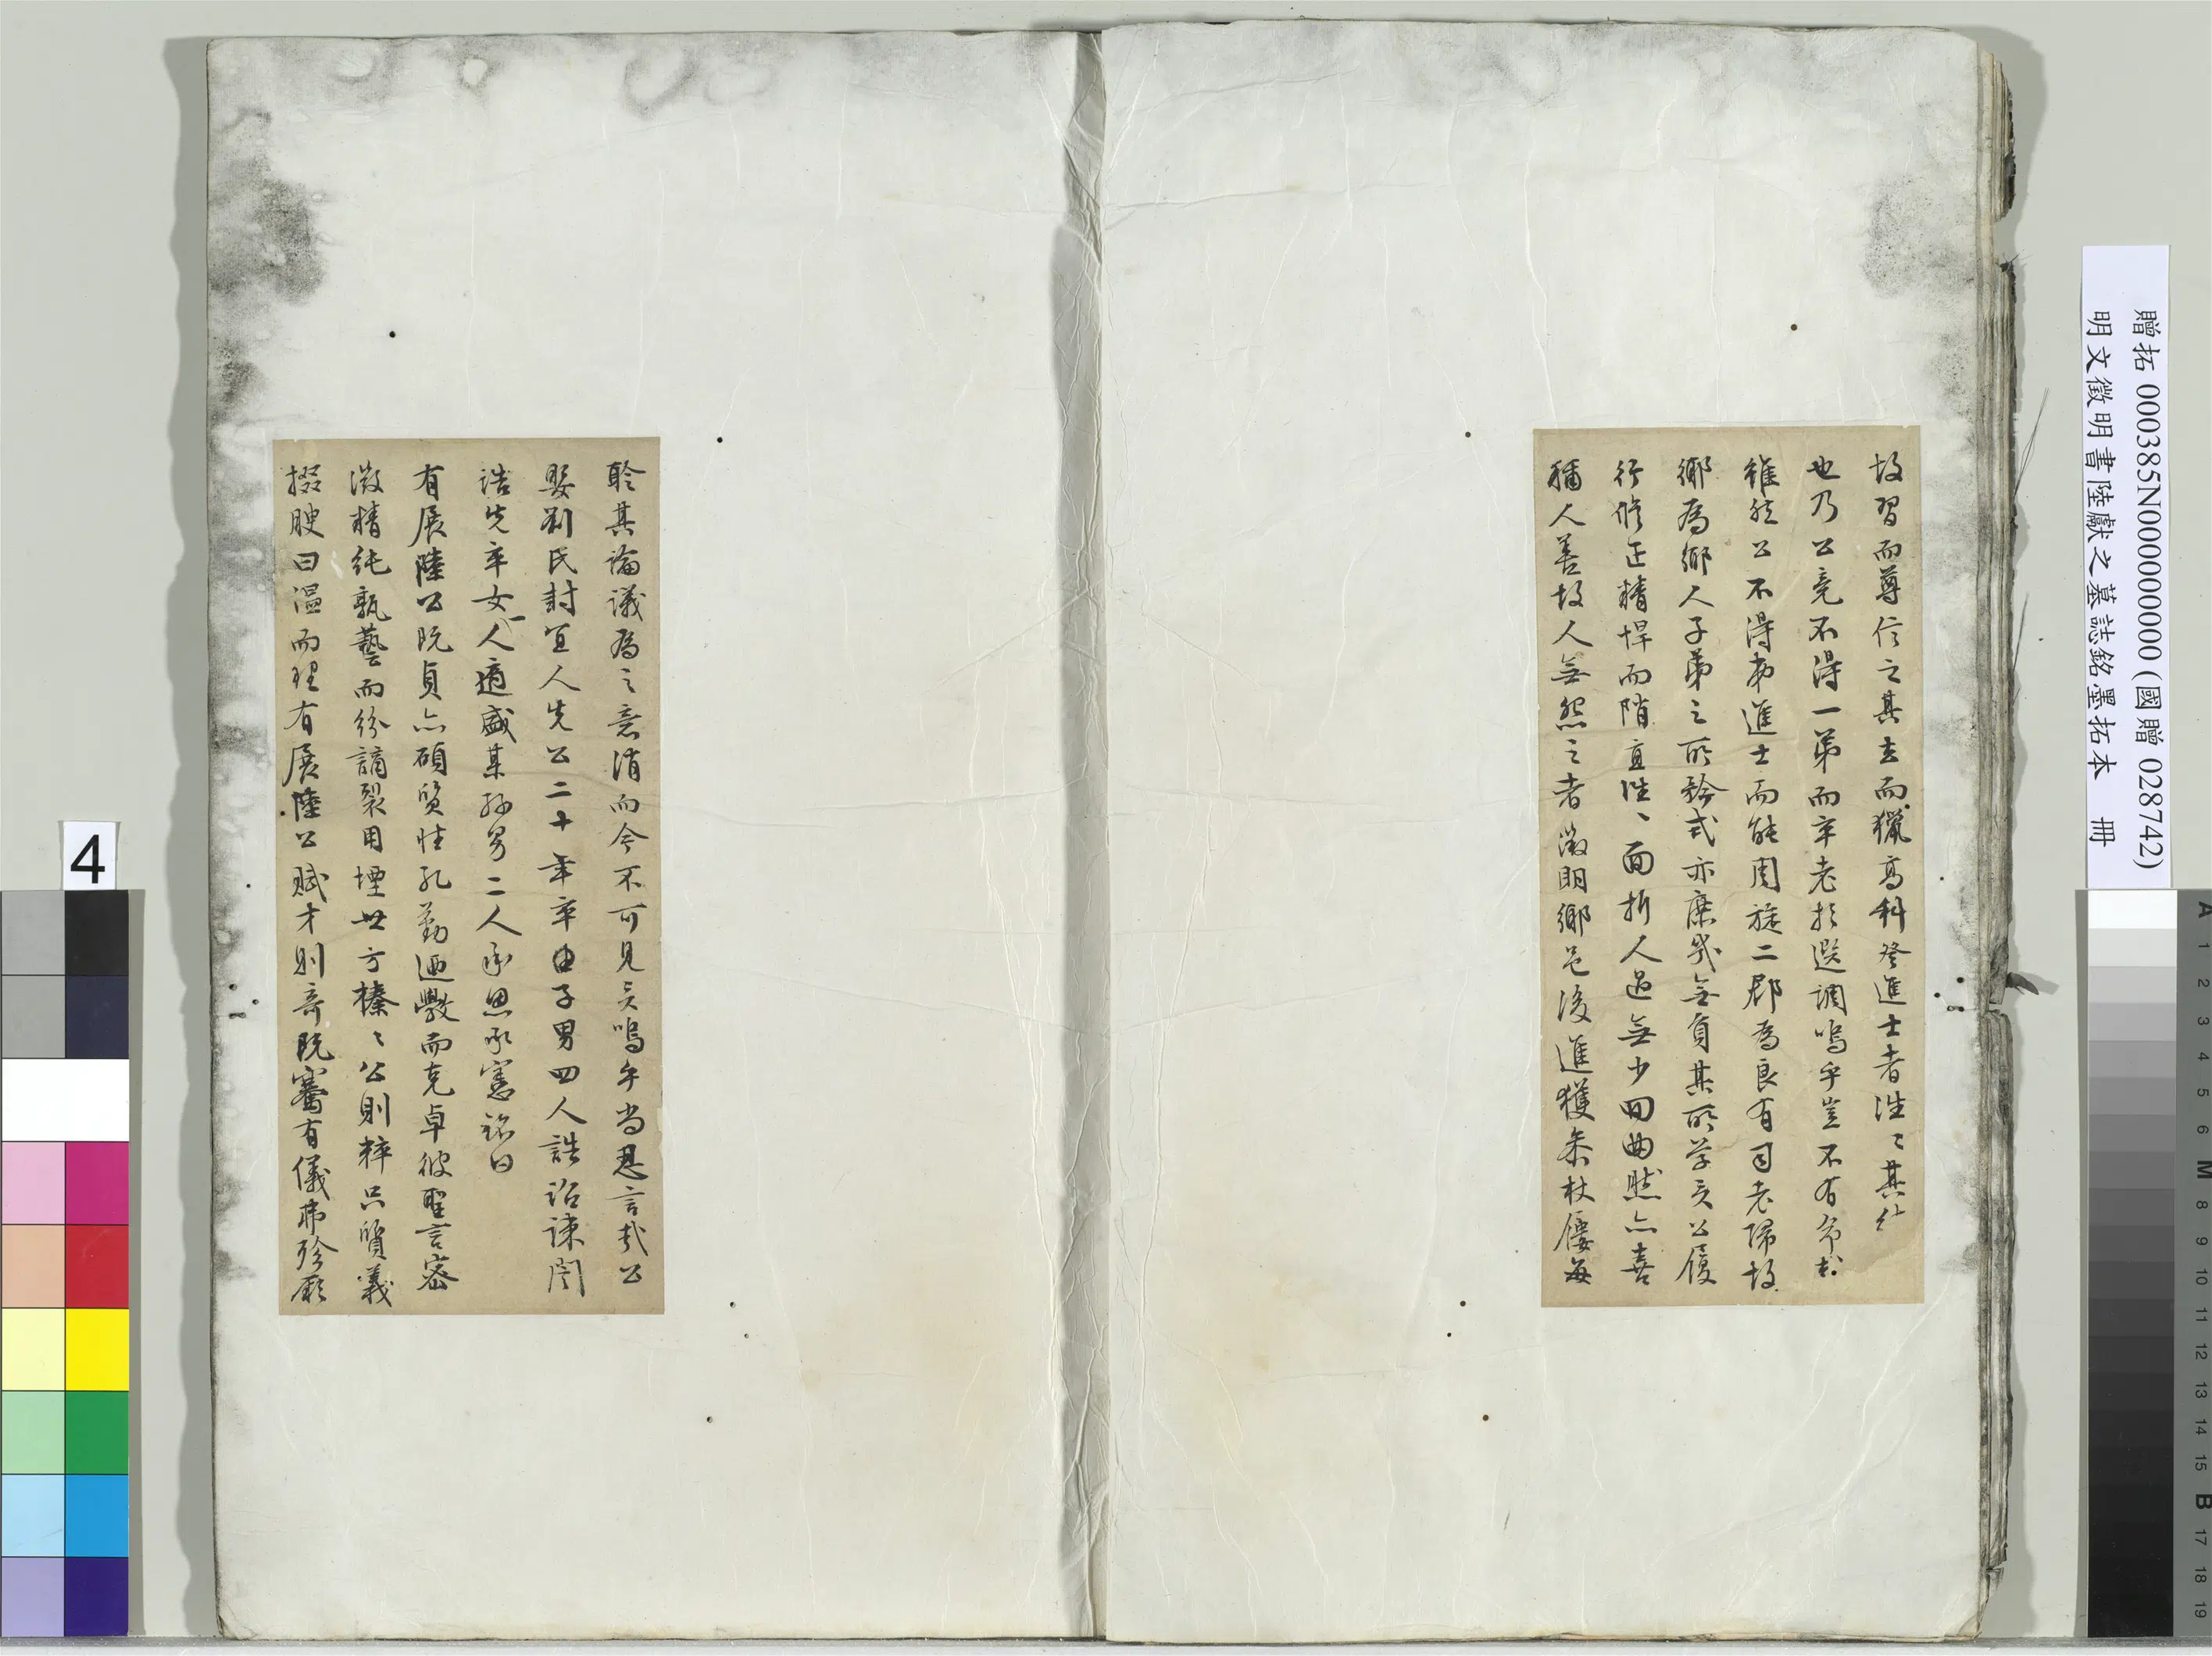 故習而尊信之其去而獵高科登進士者往〻其人
也乃公竟不得一第而卒老於選調嗚乎豈不有命哉
雖然公不得第進士而能周旋二郡為良有司老歸故
鄉為鄉人子弟之所矜式亦庶幾無負其所学矣公履
行修正精悍而陗直往、面折人過無少回曲然亦喜
稱人善故人無怨之者徵明鄉邑後進獲奉杖屨每
聆其論議為之意消而今不可見矣嗚乎尚忍言哉公
娶劉氏封宜人先公二十年卒由子男四人誥詔諫誾
誥先卒女一人適盛某孫男二人承恩承憲銘曰
有展陸公既貞亦碩質性孔勤迺斆而克卓彼聖言密
微精純孰藝而紛謫裂用堙世方榛〻公則粹只質義
掇腴曰温而理有展陸公賦才則奇既騫有儀弗殄厥
4
贈拓 000385N000000000 (國贈 028742)
明文徵明書陸獻之墓誌銘墨拓本 冊
A 1 2 3 4 5 6 M 8 9 10 11 12 13 14 15 B 17 18 19